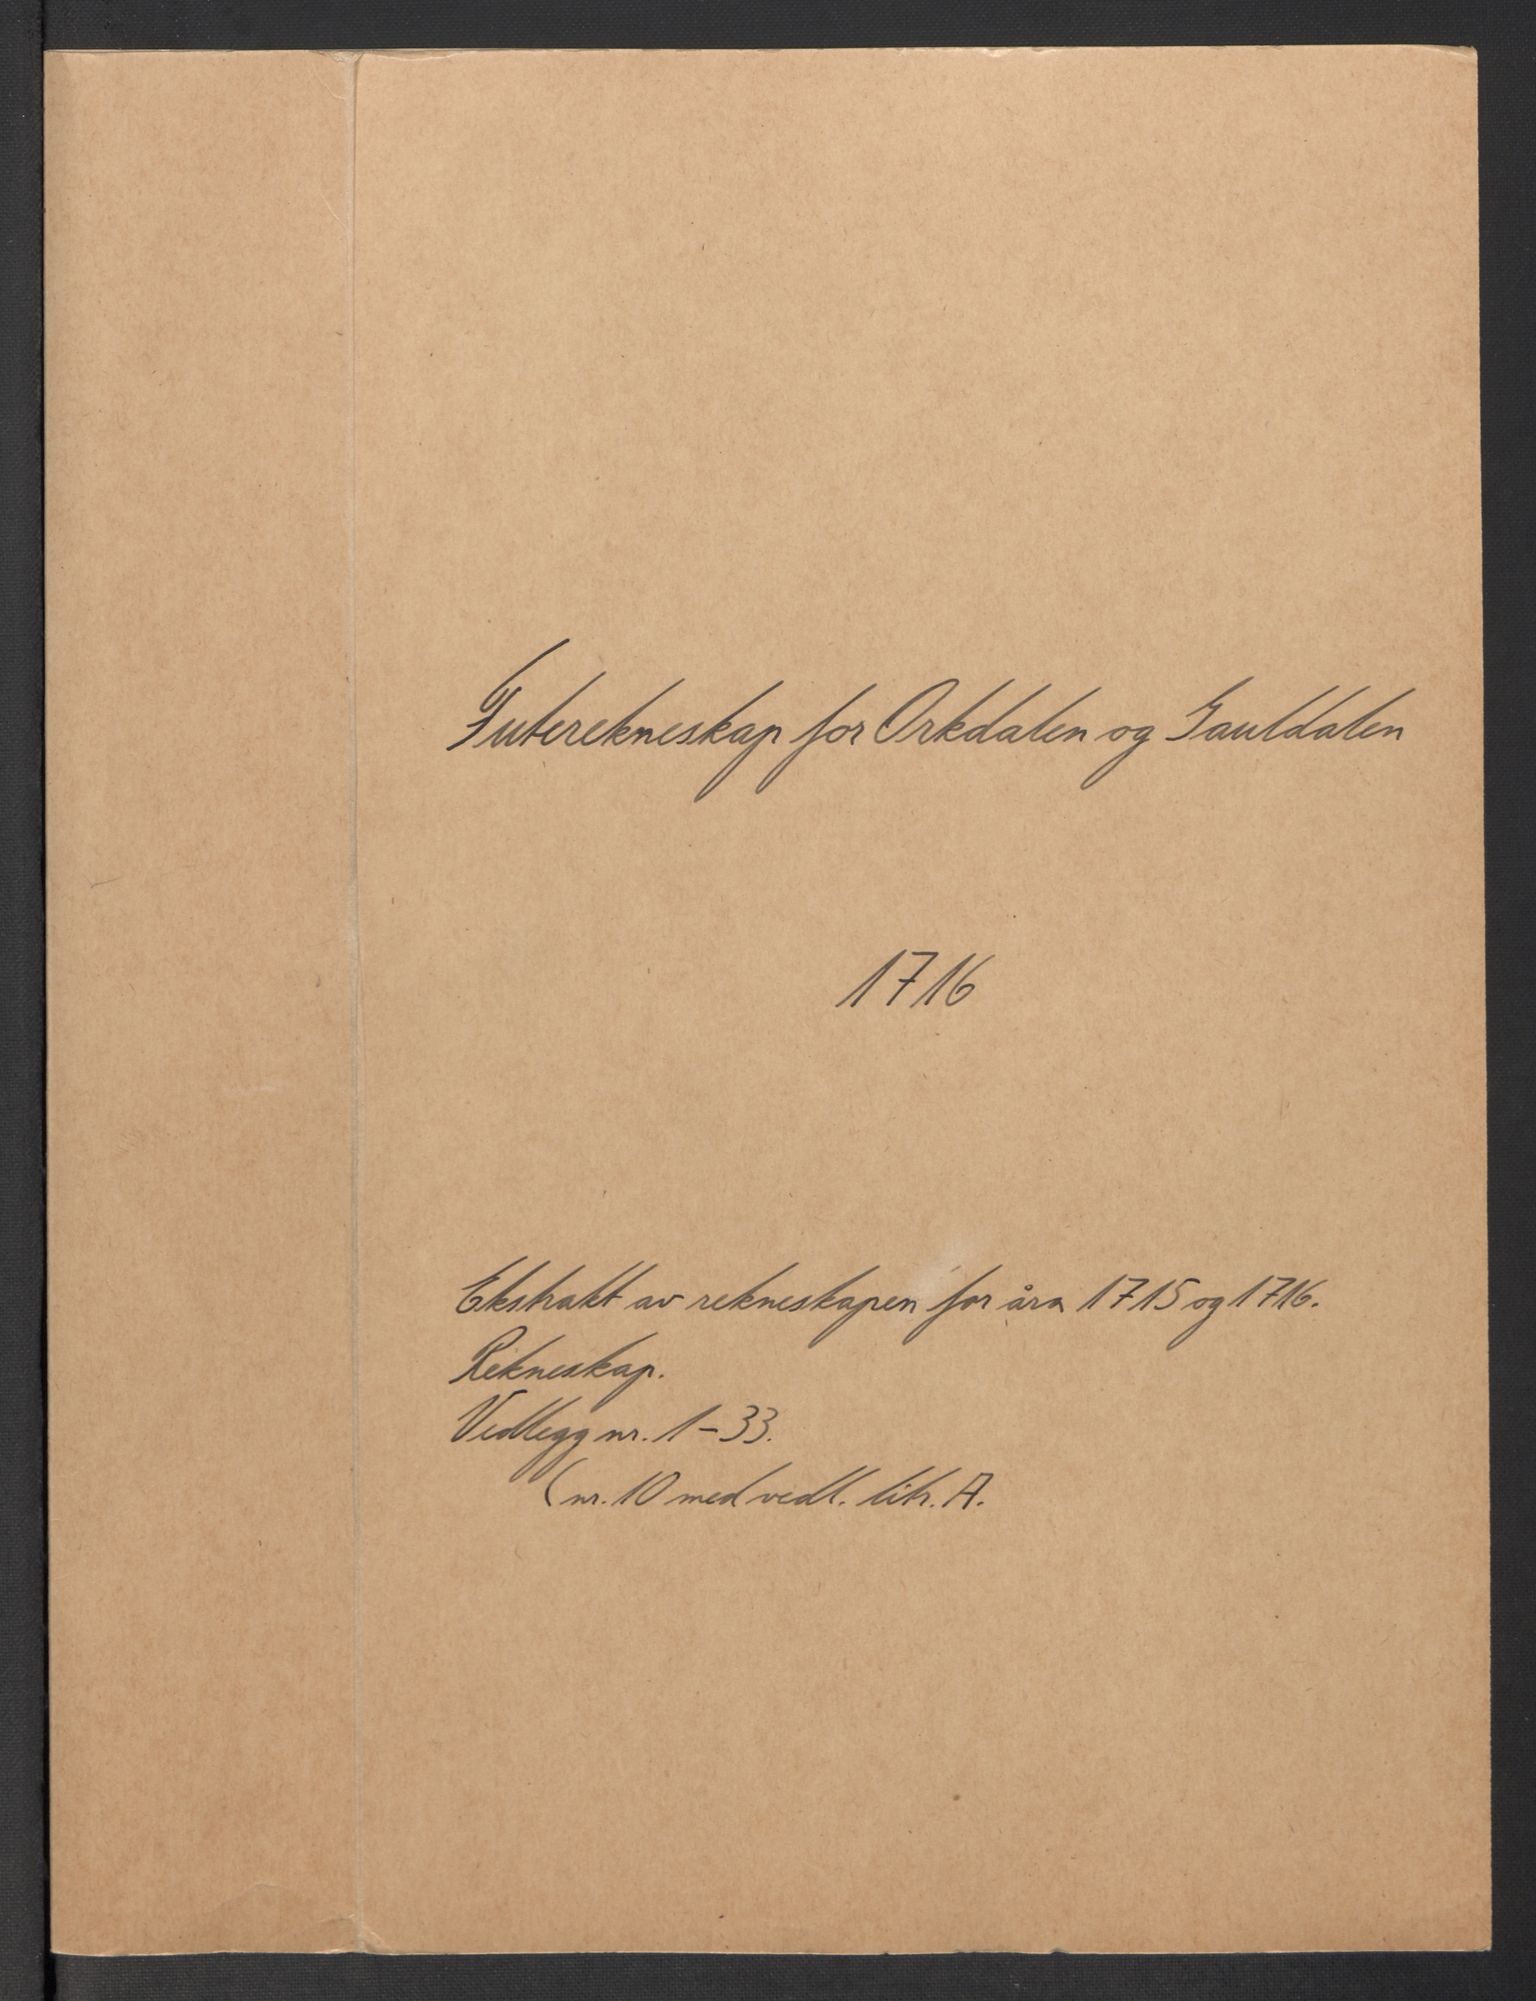 Futerekneskap for Orkdalen og Gauldalen
1716
Ekstrakt av rekneskapen for åra 1715 og 1716.
Rekneskap.
Vedlegg nr. 1-33.
(nr. 10 med vedl. litr. A.